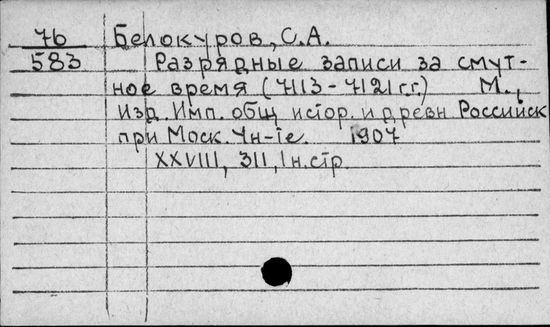 76 Белокуров, С.А.
583 Разрядные записи за смут-
ное время (7113-7121 г.г.) М.,
Изд. Имп. общ истор. и древн Российск
при Моск. Ун-те. 1907
XXVIII, 311, 1н.стр.